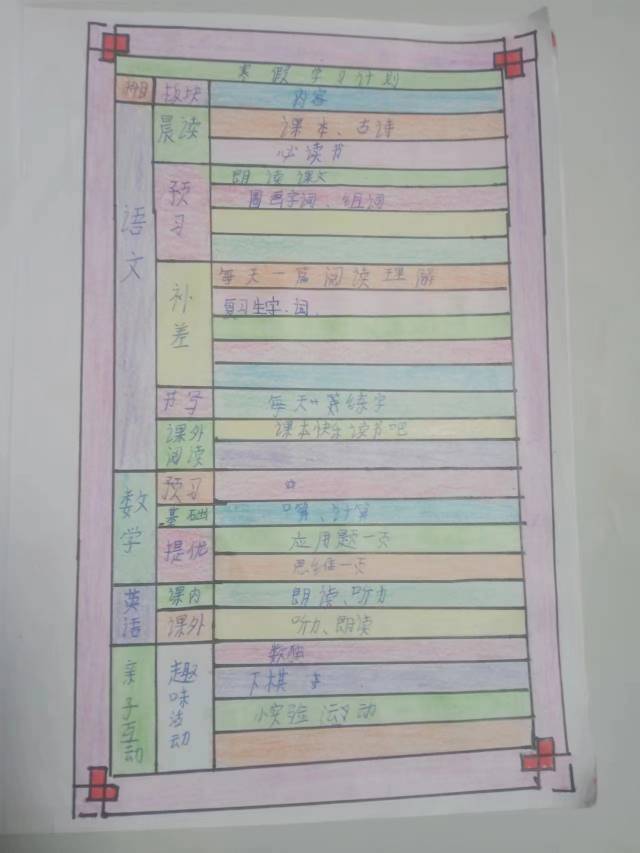 寒假学习计划
科目 板块 内容
语文 晨读 课本、古诗
必读书
预习 朗读课文
圈画字词、组词
补差 每天一篇阅读理解
复习生字、词、
书写 每天一篇练字
课外阅读 课本快乐读书吧
数学 预习
基础 口算、计算
提优 应用题一页
思维一页
英语 课内 朗读、听力
课外 听力、朗读
亲子互动 趣味活动 数独
下棋
小实验 运动